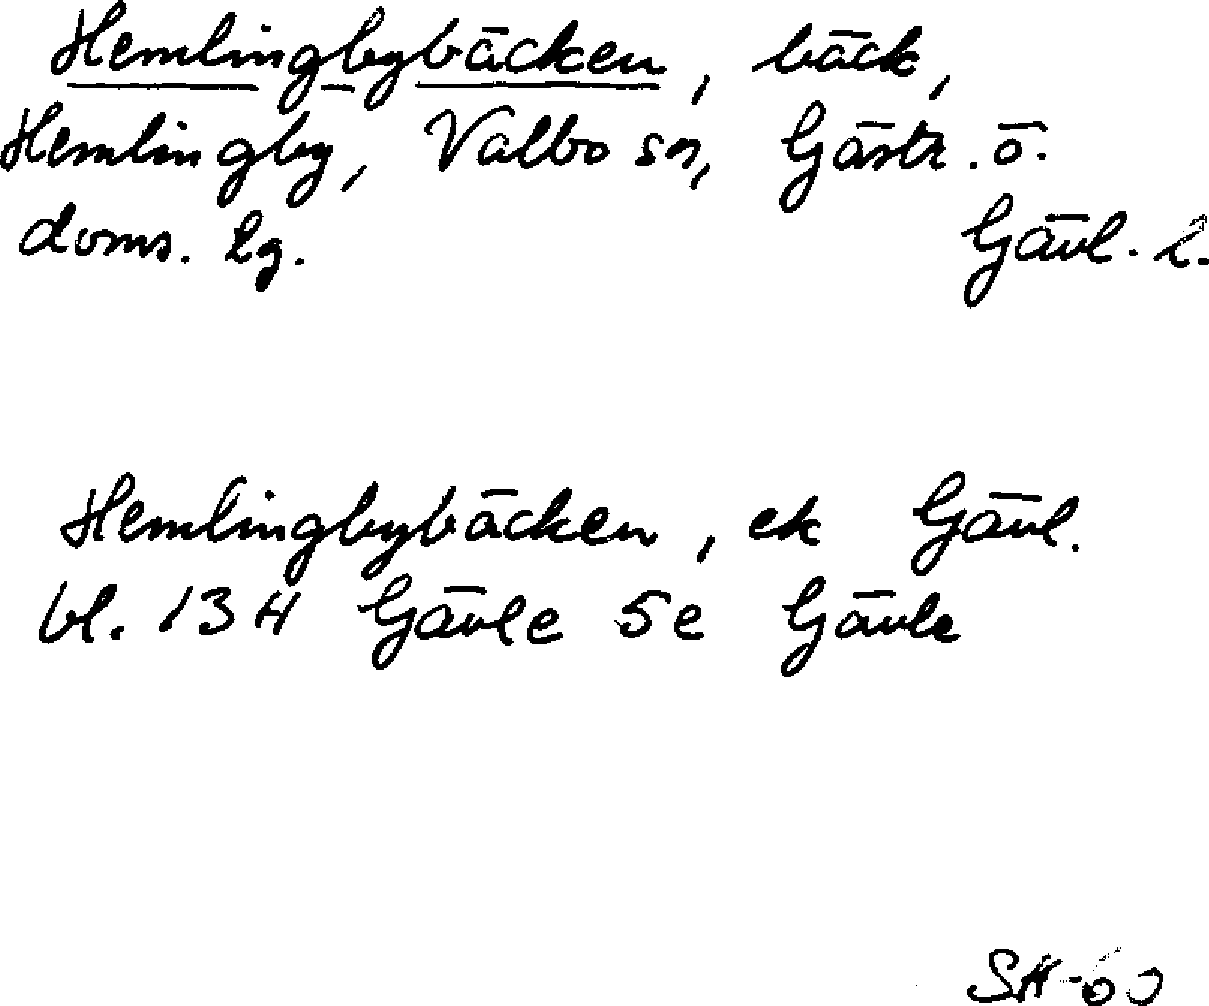 Hemlingbybäcken, bäck,
Hemlingby, Valbo sn, Gästr. ö.
doms. lg. Gävl. l.
Hemlingbybäcken, ek Gävl.
bl. 13H Gävle 5e Gävle
SH-60